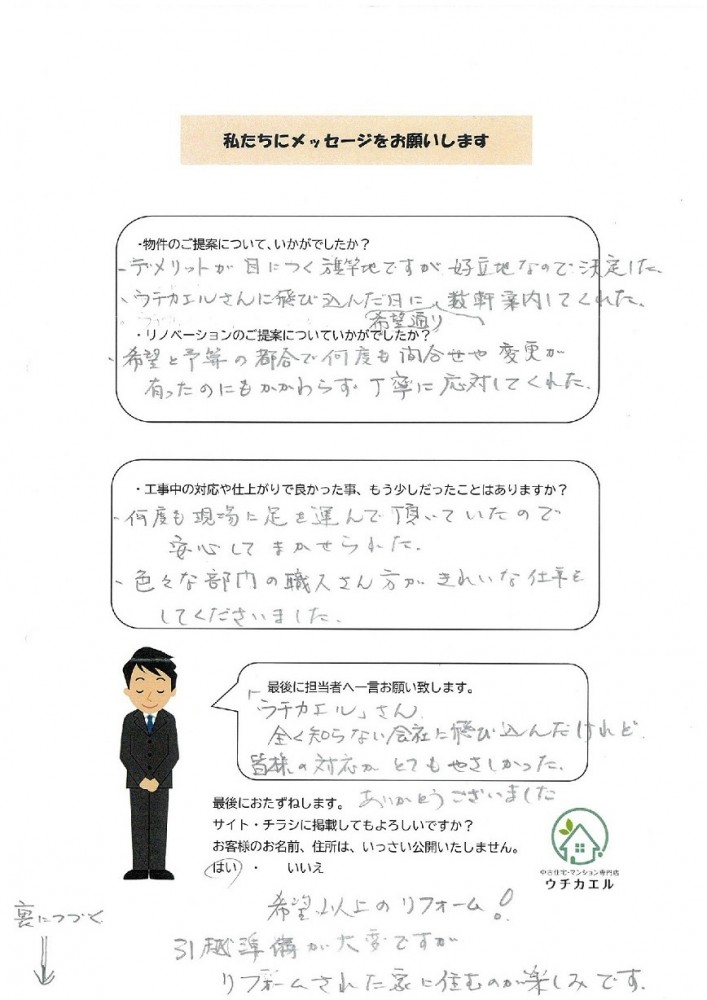 私たちにメッセージをお願いします
・物件のご提案について、いかがでしたか？
・デメリットが目につく旗竿地ですが好立地なので決定した。
・ウチカエルさんに飛び込んだ日に、数軒案内してくれた。
希望通り
・リノベーションのご提案についていかがでしたか？
・希望と予算の都合で何度も問合せや変更が
有ったのにもかかわらず丁寧に応対してくれた。
・工事中の対応や仕上がりで良かった事、もう少しだったことはありますか？
・何度も現場に足を運んで頂いていたので
安心してまかせられた。
・色々な部門の職人さん方がきれいな仕事を
してくださいました。
最後に担当者へ一言お願い致します。
「ウチカエル」さん
全く知らない会社に飛び込んだけれど
皆様の対応がとてもやさしかった。
ありがとうございました
最後におたずねします。
サイト・チラシに掲載してもよろしいですか？
お客様のお名前、住所は、いっさい公開いたしません。
はい ・ いいえ
中古住宅・マンション専門店
ウチカエル
希望以上のリフォーム！
裏につづく
引越準備が大変ですが
リフォームされた家に住むのが楽しみです。